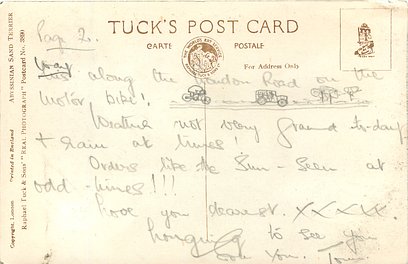 Page 2.
TUCK'S POST CARD
CARTE POSTALE
For Address Only
was along the London Road on the
Motor bike!
Weather not very grand to-day
+ rain at times!
Orders like the Sun - Seen at
odd - times!!!
Love you dearest. XXXXX.
Longing to see you
Love You. Tom.
ABYSSINIAN SAND TERRIER
Raphael Tuck & Sons' "REAL PHOTOGRAPH" Postcard No. 3890
Copyright, London Printed in England